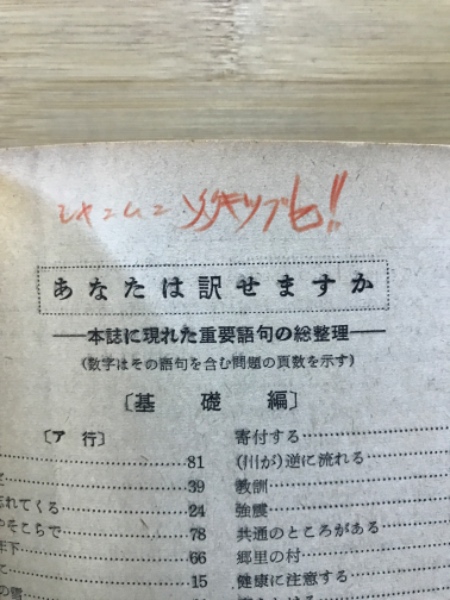 あなたは訳せますか
——本誌に現れた重要語句の総整理——
(数字はその語句を含む問題の頁数を示す)
〔基礎編〕
〔ア行〕
81
39
れてくる 24
やそこらで 78
下 66
に 15
の雪
寄付する
(川が)逆に流れる
教訓
強震
共通のところがある
郷里の村
健康に注意する